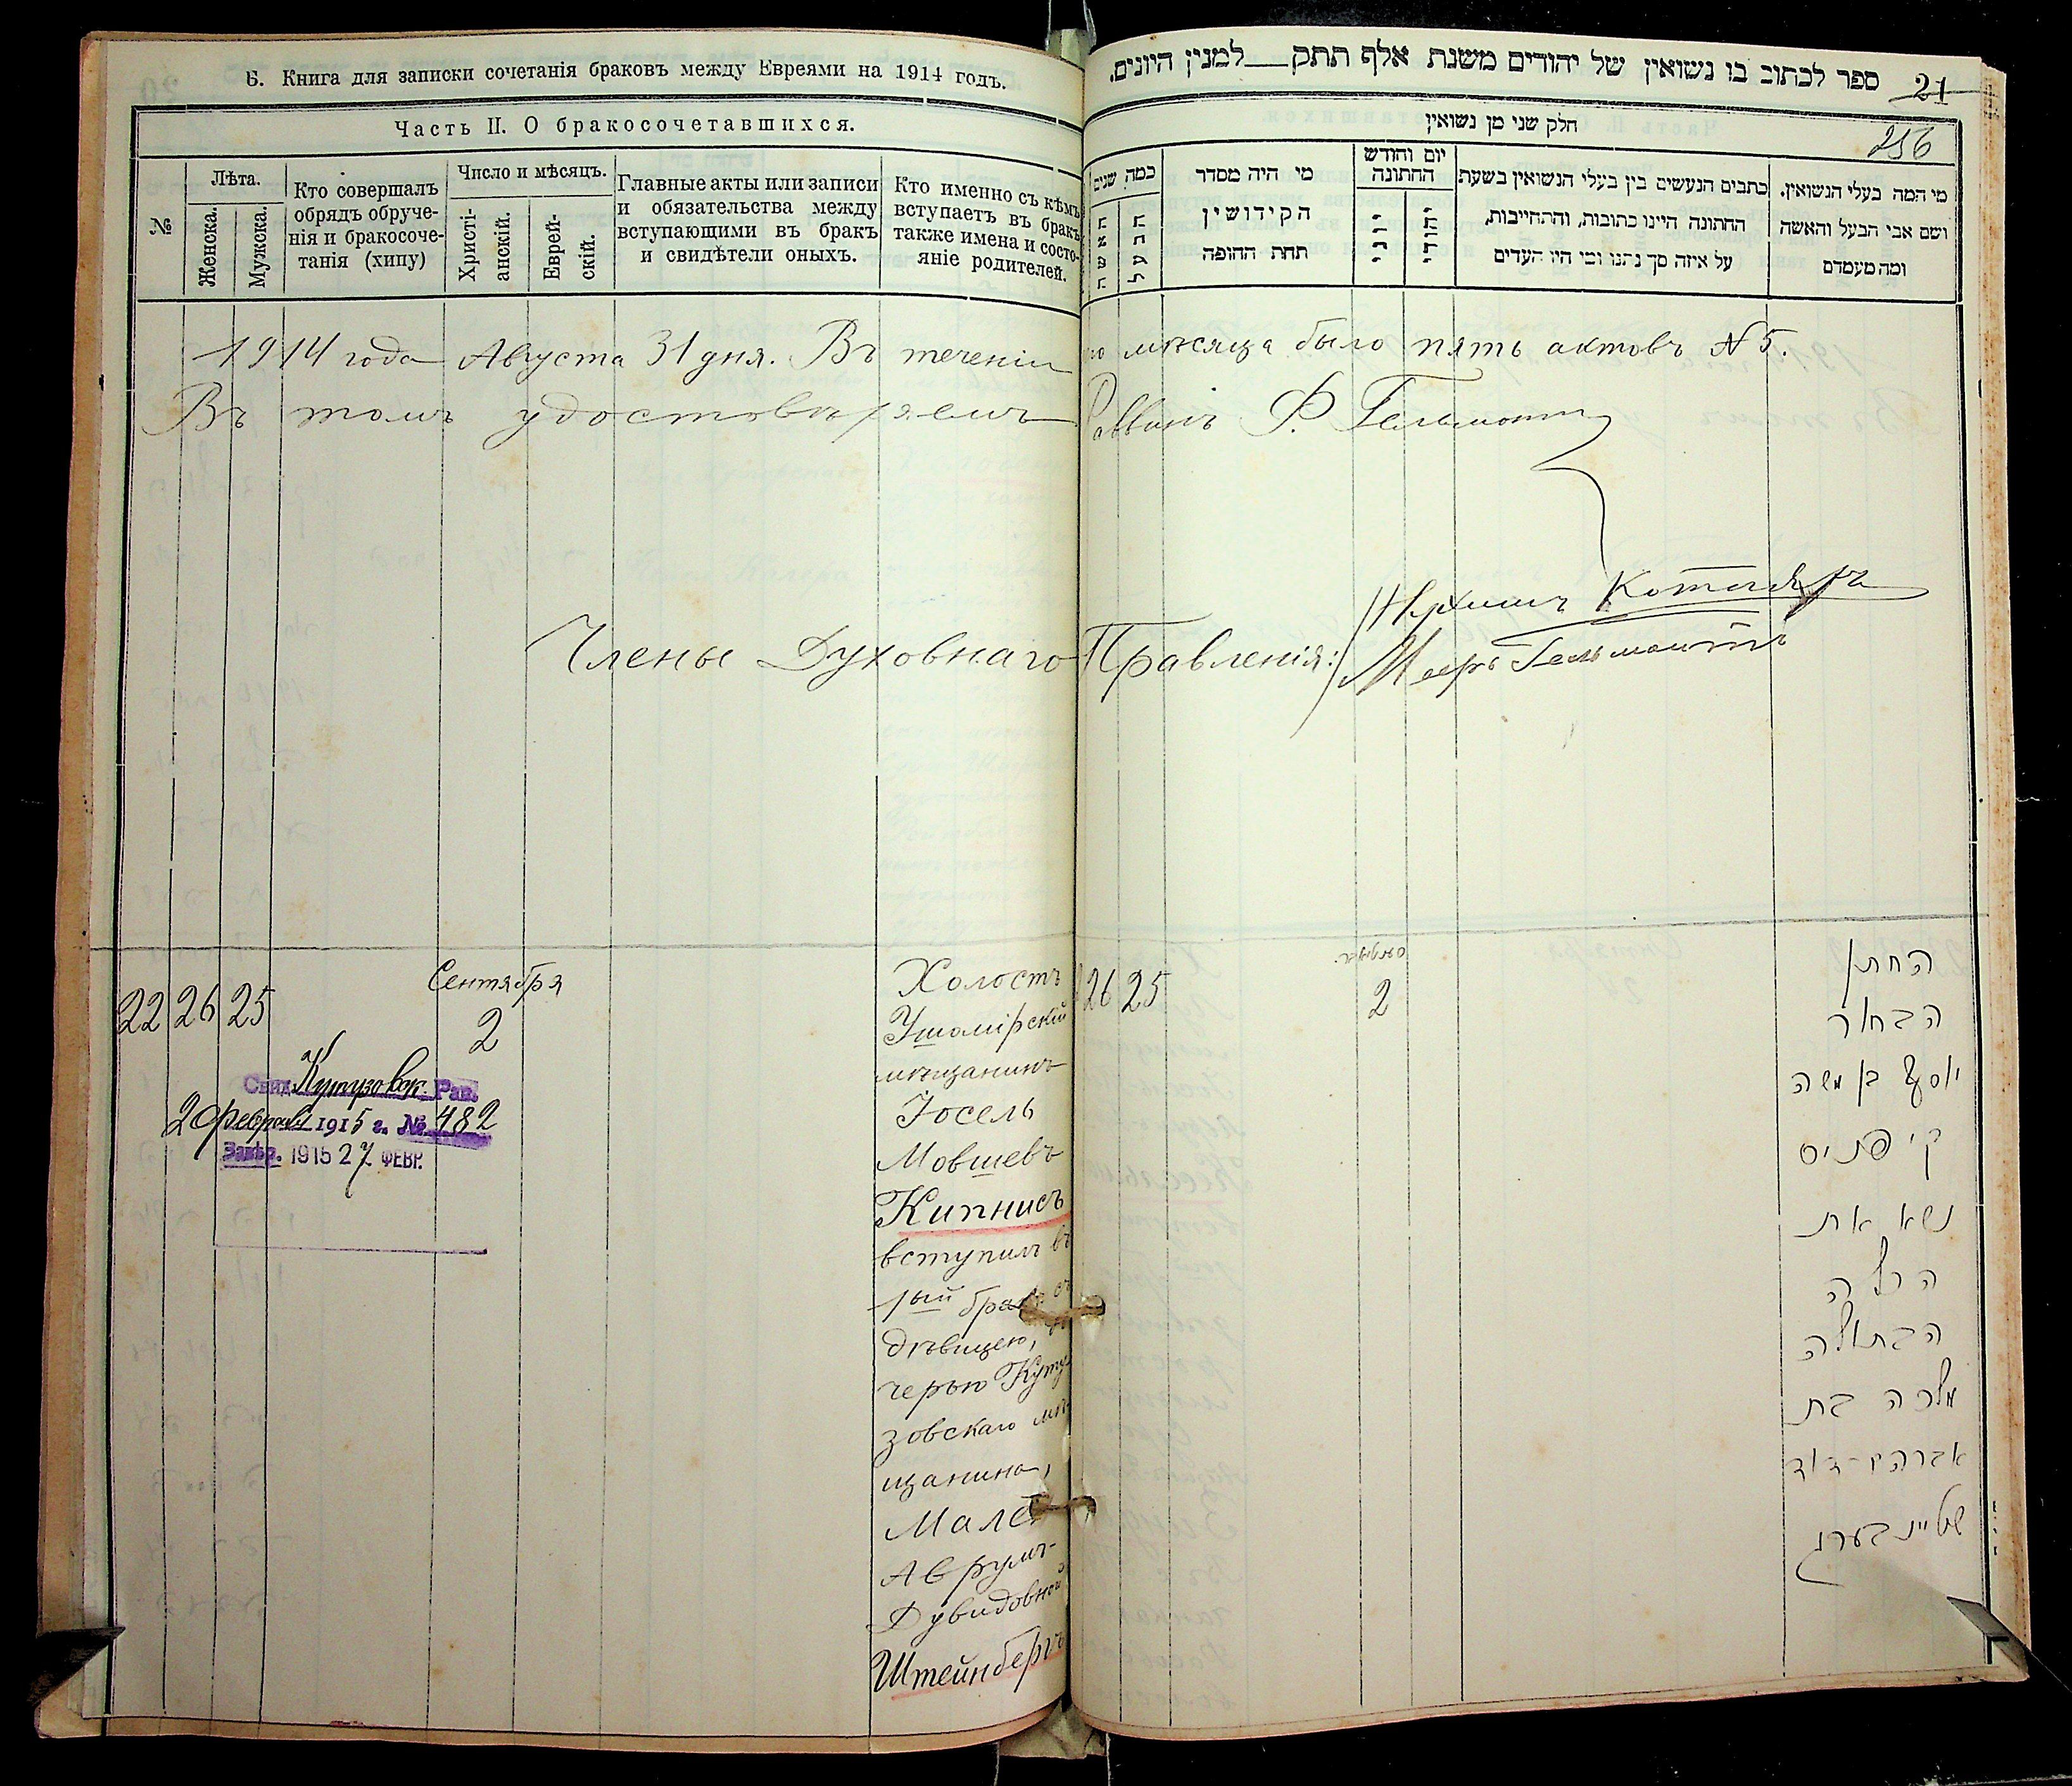 6. Книга для записки сочетанія браковъ между Евреями на 1914 годъ.
Часть II. О бракосочетавшихся.
№
Лѣта.
Женска.
Мужска.
Кто совершалъ
обрядъ обруче-
нія и бракосоче-
танія (хипу)
Число и мѣсяцъ.
Христі-
анскій.
Еврей-
скій.
Главные акты или записи
и обязательства между
вступающими въ бракъ
и свидѣтели оныхъ.
Кто именно съ кѣмъ
вступаетъ въ бракъ
также имена и состо-
яніе родителей.
ספר לכתוב בו נשואין של יהודים משנת אלף תתק למנין היונים.
21
256
חלק שני מן נשואין
כמה שנים
האשה
הבעל
מי היה מסדר
הקידושין
תחת החופה
יום וחודש
החתונה
כתבים הנעשים בין בעלי הנשואין בשעת
החתונה היינו כתובות, והתחייבות,
על איזה סך נתנו ומי היו העדים
מי המה בעלי הנשואין.
ושם אבי הבעל והאשה
ומה מעמדם
1914 года Августа 31 дня. Въ теченіи
мѣсяца было пять актовъ N 5.
Въ томъ удостовѣряемъ
Раввинъ Ф. Гельмонтъ
Члены Духовнаго Правленія:
Котляръ
Мееръ Гельмонтъ
22 26 25
Сентября
2
Свид. Кутузовск. Рав.
2 февраля 1915 г. № 482
Завѣр. 1915 27 ФЕВР.
Холостъ
Ушомірскій
мѣщанинъ
Іосель
Мовшевъ
Кипнисъ
вступилъ въ
1ый бракъ съ
дѣвицею, до
черью Куту
зовскаго мѣ
щанина,
Малей
Аврумъ-
Дувидовной
Штейнбергъ
26 25
2
החתן
הבחור
יוסף בן משה
קיפניס
נשא את
הכלה
הבתולה
מלכה בת
אברהם-דוד
שטיינבערג